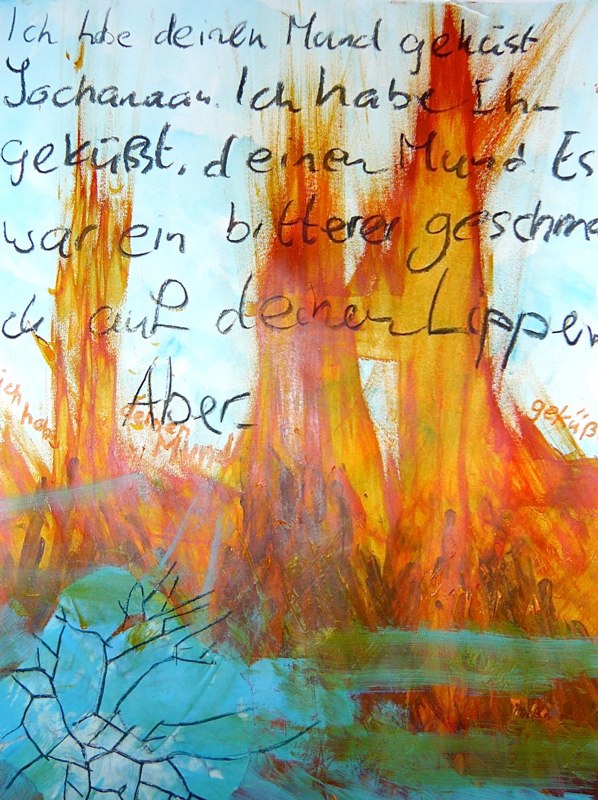 Ich habe deinen Mund geküst
Jochanaan. Ich habe Ihn
geküßt, deinen Mund Es
war ein bitterer geschma
ck auf deinen Lippen
Aber
ich habe
deinen
Mund
geküßt